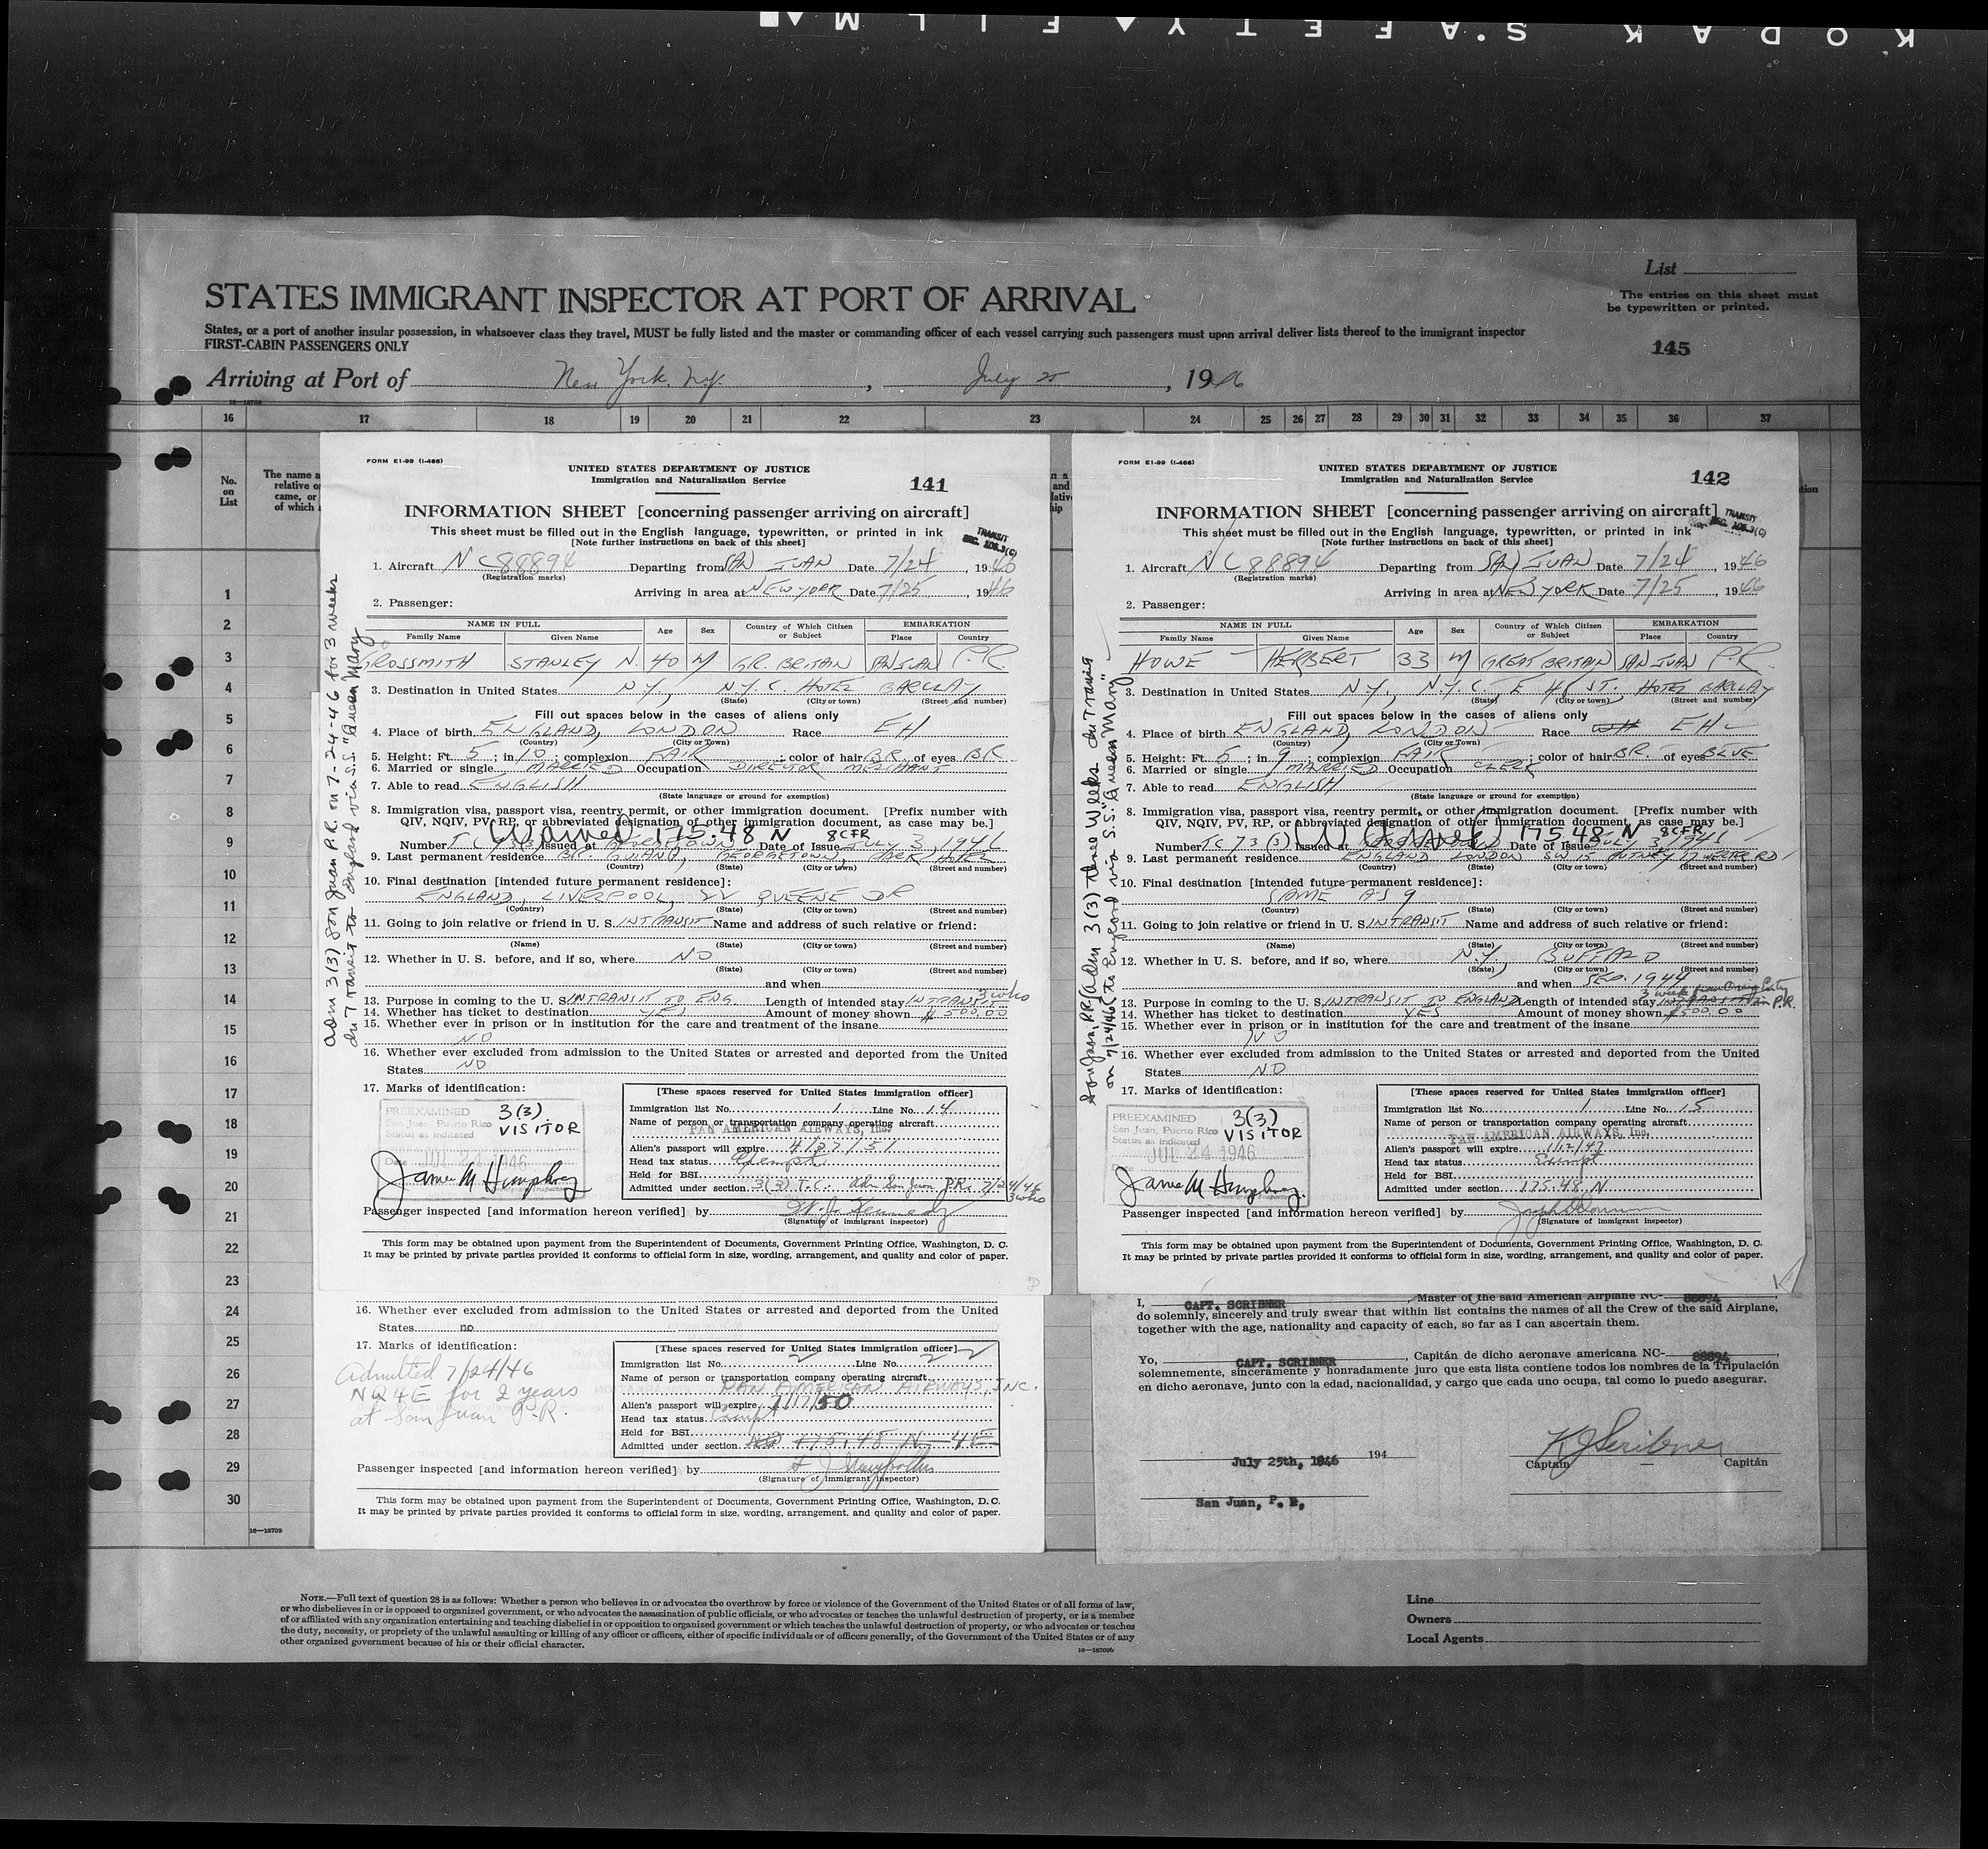 KODAK SAFETY FILM
List
STATES IMMIGRANT INSPECTOR AT PORT OF ARRIVAL
The entries on this sheet must
be typewritten or printed.
States, or a port of another insular possession, in whatsoever class they travel, MUST be fully listed and the master or commanding officer of each vessel carrying such passengers must upon arrival deliver lists thereof to the immigrant inspector
FIRST-CABIN PASSENGERS ONLY
145
Arriving at Port of New York, N.Y. , July 25 , 1946
16—18709
16 17 18 19 20 21 22 23 24 25 26 27 28 29 30 31 32 33 34 35 36 37
No.
on
List
The name a
relative o
came, or
of which
1
2
3
4
5
6
7
8
9
10
11
12
13
14
15
16
17
18
19
20
21
22
23
24
25
26
27
28
29
30
16—18709
FORM E1-99 (I-466)
UNITED STATES DEPARTMENT OF JUSTICE
Immigration and Naturalization Service
141
INFORMATION SHEET [concerning passenger arriving on aircraft]
This sheet must be filled out in the English language, typewritten, or printed in ink
[Note further instructions on back of this sheet]
TRANSIT
SEC. 108.3(C)
1. Aircraft NC88894 Departing from SAN JUAN Date 7/24, 1946
(Registration marks)
Arriving in area at NEW YORK Date 7/25, 1946
2. Passenger:
NAME IN FULL Age Sex Country of Which Citizen or Subject EMBARKATION
Family Name Given Name Place Country
GROSSMITH STANLEY N. 40 M GR. BRITAN SAN JUAN P.R.
3. Destination in United States N.Y., N.Y.C. HOTEL BARCLAY
(State) (City or town) (Street and number)
Fill out spaces below in the cases of aliens only
4. Place of birth ENGLAND, LONDON Race EH
(Country) (City or Town)
5. Height: Ft. 5 ; in. 10 ; complexion FAIR ; color of hair BR. of eyes BR.
6. Married or single MARRIED Occupation DIRECTOR MERCHANT
7. Able to read ENGLISH
(State language or ground for exemption)
8. Immigration visa, passport visa, reentry permit, or other immigration document. [Prefix number with
QIV, NQIV, PV, RP, or abbreviated designation of other immigration document, as case may be.]
(Waived) 175.48 N 8CFR
Number Issued at GEORGETOWN Date of Issue JULY 3, 1946
9. Last permanent residence BR. GUIANA, GEORGETOWN, PARK HOTEL
(Country) (State) (City or town) (Street and number)
10. Final destination [intended future permanent residence]:
ENGLAND, LIVERPOOL, 22 QUEENS DR
(Country) (State) (City or town) (Street and number)
11. Going to join relative or friend in U. S. INTRANSIT Name and address of such relative or friend:
(Name) (State) (City or town) (Street and number)
12. Whether in U. S. before, and if so, where NO
(State) (City or town) (Street and number)
and when
3 wks
13. Purpose in coming to the U. S. INTRANSIT TO ENG. Length of intended stay INTRANSIT
14. Whether has ticket to destination YES Amount of money shown $500.00
15. Whether ever in prison or in institution for the care and treatment of the insane
NO
16. Whether ever excluded from admission to the United States or arrested and deported from the United
States NO
17. Marks of identification:
PREEXAMINED
San Juan, Puerto Rico
Status as indicated
3(3)
VISITOR
Date JUL 24 1946
James M Humphrey
Immigrant Inspector
[These spaces reserved for United States immigration officer]
Immigration list No. 1 Line No. 14
Name of person or transportation company operating aircraft
PAN AMERICAN AIRWAYS, Inc.
Alien's passport will expire 4/27/51
Head tax status Exempt
Held for BSI
Admitted under section 3(3) T.C. Adm San Juan PR. 7/24/46
3 wks
Passenger inspected [and information hereon verified] by W. J. Kennedy
(Signature of immigrant inspector)
This form may be obtained upon payment from the Superintendent of Documents, Government Printing Office, Washington, D. C.
It may be printed by private parties provided it conforms to official form in size, wording, arrangement, and quality and color of paper.
adm 3(3) San Juan P.R. on 7-24-46 for 3 weeks
in Transit to England via S.S. "Queen Mary"
16. Whether ever excluded from admission to the United States or arrested and deported from the United
States no
17. Marks of identification:
Admitted 7/24/46
NQ4E for 2 years
at San Juan P.R.
[These spaces reserved for United States immigration officer]
Immigration list No. 2 Line No. 2
Name of person or transportation company operating aircraft
PAN AMERICAN AIRWAYS, INC.
Alien's passport will expire 1/17/50
Head tax status Exempt
Held for BSI
Admitted under section 175.48 N 4E
Passenger inspected [and information hereon verified] by
(Signature of immigrant inspector)
This form may be obtained upon payment from the Superintendent of Documents, Government Printing Office, Washington, D. C.
It may be printed by private parties provided it conforms to official form in size, wording, arrangement, and quality and color of paper.
FORM E1-99 (I-466)
UNITED STATES DEPARTMENT OF JUSTICE
Immigration and Naturalization Service
142
INFORMATION SHEET [concerning passenger arriving on aircraft]
This sheet must be filled out in the English language, typewritten, or printed in ink
[Note further instructions on back of this sheet]
TRANSIT
SEC. 108.3(C)
1. Aircraft NC88894 Departing from SAN JUAN Date 7/24, 1946
(Registration marks)
Arriving in area at NEW YORK Date 7/25, 1946
2. Passenger:
NAME IN FULL Age Sex Country of Which Citizen or Subject EMBARKATION
Family Name Given Name Place Country
HOWE HERBERT 33 M GREAT BRITAIN SAN JUAN P.R.
3. Destination in United States N.Y., N.Y.C., E 48 ST., HOTEL BARCLAY
(State) (City or town) (Street and number)
Fill out spaces below in the cases of aliens only
4. Place of birth ENGLAND, LONDON Race EH
(Country) (City or Town)
5. Height: Ft. 5 ; in. 9 ; complexion FAIR ; color of hair BR. of eyes BLUE
6. Married or single MARRIED Occupation CLERK
7. Able to read ENGLISH
(State language or ground for exemption)
8. Immigration visa, passport visa, reentry permit, or other immigration document. [Prefix number with
QIV, NQIV, PV, RP, or abbreviated designation of other immigration document, as case may be.]
(Waived) 175.48 N 8CFR
Number TC 73 (3) Issued at Date of Issue JULY 3, 1946
9. Last permanent residence ENGLAND LONDON SW 15 PUTNEY 17 WERTER RD
(Country) (State) (City or town) (Street and number)
10. Final destination [intended future permanent residence]:
SAME AS 9
(Country) (State) (City or town) (Street and number)
11. Going to join relative or friend in U. S. INTRANSIT Name and address of such relative or friend:
(Name) (State) (City or town) (Street and number)
12. Whether in U. S. before, and if so, where N.Y., BUFFALO
(State) (City or town) (Street and number)
and when SEP. 1944
13. Purpose in coming to the U. S. INTRANSIT TO ENGLAND Length of intended stay 3 weeks from Orig Entry in P.R.
14. Whether has ticket to destination YES Amount of money shown $500.00
15. Whether ever in prison or in institution for the care and treatment of the insane
NO
16. Whether ever excluded from admission to the United States or arrested and deported from the United
States NO
17. Marks of identification:
PREEXAMINED
San Juan, Puerto Rico
Status as indicated
3(3)
VISITOR
JUL 24 1946
James M Humphrey
[These spaces reserved for United States immigration officer]
Immigration list No. 1 Line No. 15
Name of person or transportation company operating aircraft
PAN AMERICAN AIRWAYS, Inc.
Alien's passport will expire 1/12/47
Head tax status Exempt
Held for BSI
Admitted under section 175.48 N
Passenger inspected [and information hereon verified] by
(Signature of immigrant inspector)
This form may be obtained upon payment from the Superintendent of Documents, Government Printing Office, Washington, D. C.
It may be printed by private parties provided it conforms to official form in size, wording, arrangement, and quality and color of paper.
San Juan, P.R. Adm 3(3) three Weeks in Transit
on 7/24/46 to England via S.S. "Queen Mary"
I, CAPT. SCRIBNER, Master of the said American Airplane NC- 88894
do solemnly, sincerely and truly swear that within list contains the names of all the Crew of the said Airplane,
together with the age, nationality and capacity of each, so far as I can ascertain them.
Yo, CAPT. SCRIBNER, Capitán de dicho aeronave americana NC- 88894,
solemnemente, sinceramente y honradamente juro que esta lista contiene todos los nombres de la Tripulación
en dicho aeronave, junto con la edad, nacionalidad, y cargo que cada uno ocupa, tal como lo puedo asegurar.
July 25th, 1946 194
K J Scribner
Captain — Capitán
San Juan, P. R.
NOTE.—Full text of question 28 is as follows: Whether a person who believes in or advocates the overthrow by force or violence of the Government of the United States or of all forms of law,
or who disbelieves in or is opposed to organized government, or who advocates the assassination of public officials, or who advocates or teaches the unlawful destruction of property, or is a member
of or affiliated with any organization entertaining and teaching disbelief in or opposition to organized government or which teaches the unlawful destruction of property, or who advocates or teaches
the duty, necessity, or propriety of the unlawful assaulting or killing of any officer or officers, either of specific individuals or of officers generally, of the Government of the United States or of any
other organized government because of his or their official character.
16—18709b
Line
Owners
Local Agents